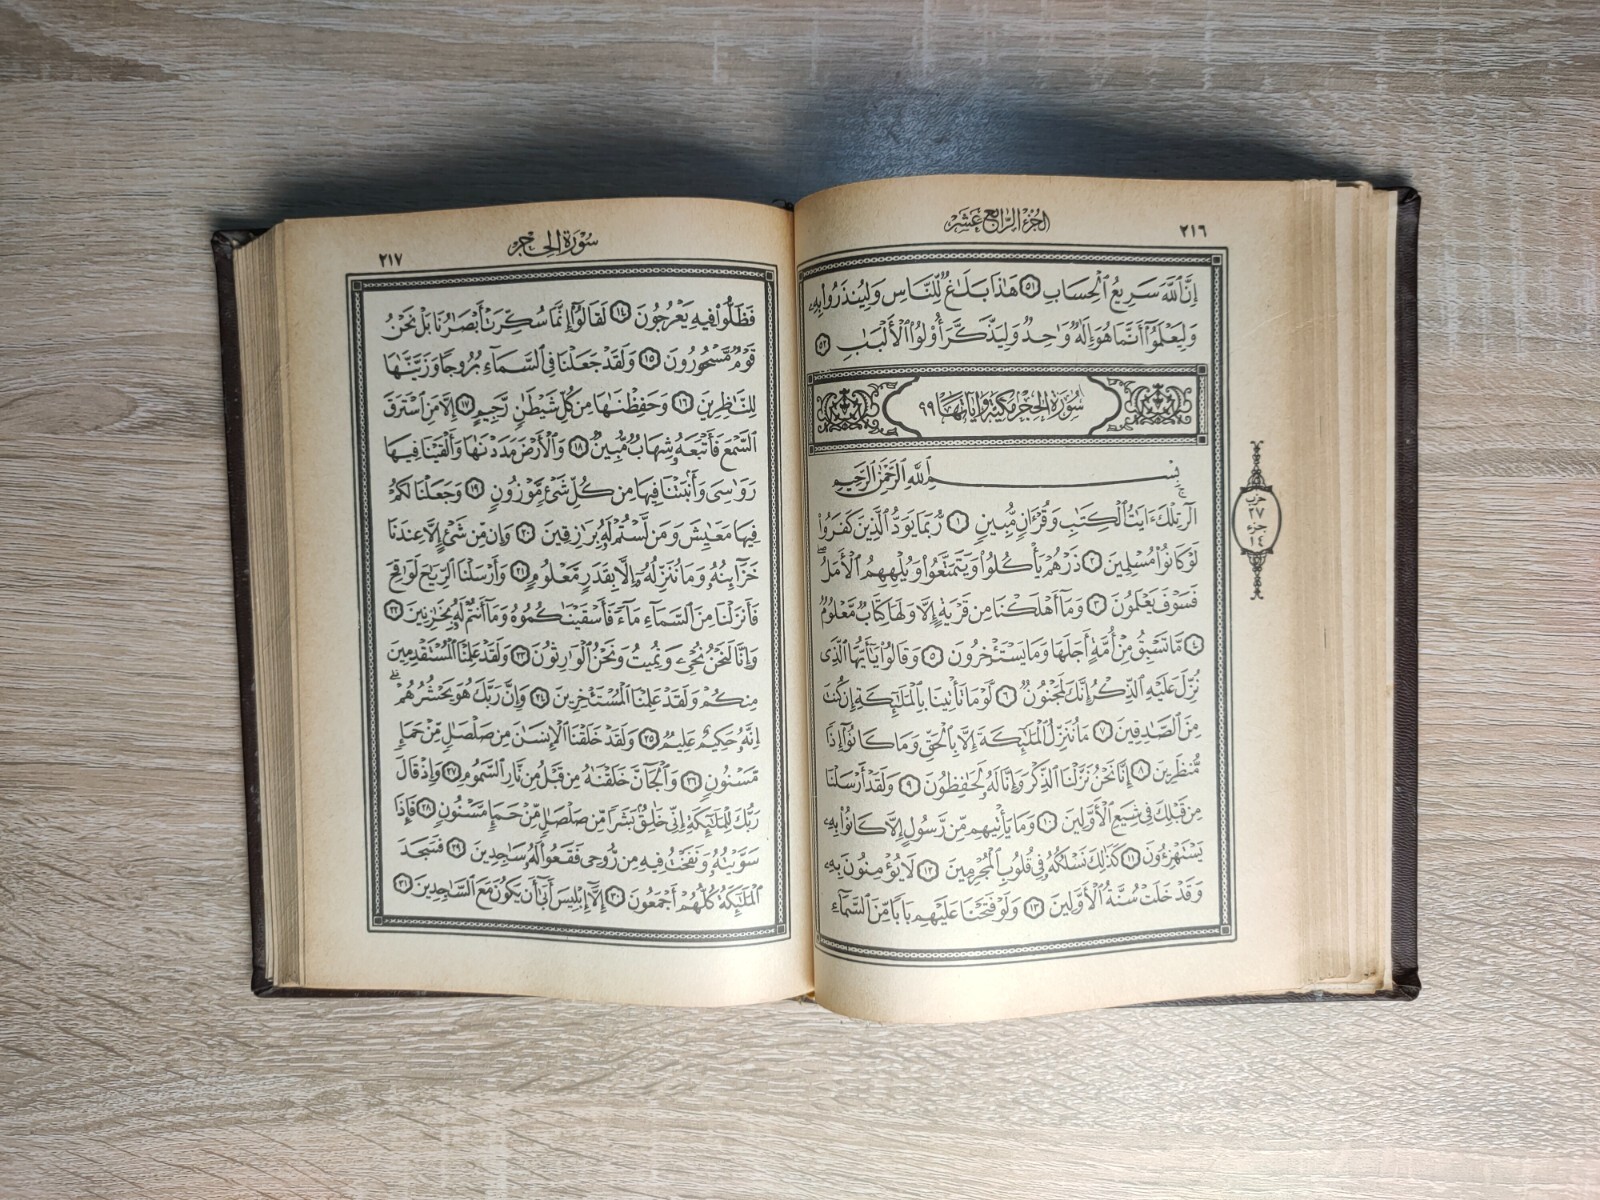 الجزء الرابع عشر
٢١٦
إِنَّ ٱللَّهَ سَرِيعُ ٱلْحِسَابِ ٥١ هَٰذَا بَلَٰغٌ لِّلنَّاسِ وَلِيُنذَرُوا۟ بِهِۦ
وَلِيَعْلَمُوٓا۟ أَنَّمَا هُوَ إِلَٰهٌ وَٰحِدٌ وَلِيَذَّكَّرَ أُو۟لُوا۟ ٱلْأَلْبَٰبِ ٥٢
سورة الحجر مكية وآياتها ٩٩
بِسْمِ ٱللَّهِ ٱلرَّحْمَٰنِ ٱلرَّحِيمِ
الٓر تِلْكَ ءَايَٰتُ ٱلْكِتَٰبِ وَقُرْءَانٍ مُّبِينٍ ١ رُّبَمَا يَوَدُّ ٱلَّذِينَ كَفَرُوا۟
لَوْ كَانُوا۟ مُسْلِمِينَ ٢ ذَرْهُمْ يَأْكُلُوا۟ وَيَتَمَتَّعُوا۟ وَيُلْهِهِمُ ٱلْأَمَلُ
فَسَوْفَ يَعْلَمُونَ ٣ وَمَآ أَهْلَكْنَا مِن قَرْيَةٍ إِلَّا وَلَهَا كِتَابٌ مَّعْلُومٌ
٤ مَّا تَسْبِقُ مِنْ أُمَّةٍ أَجَلَهَا وَمَا يَسْتَـْٔخِرُونَ ٥ وَقَالُوا۟ يَٰٓأَيُّهَا ٱلَّذِى
نُزِّلَ عَلَيْهِ ٱلذِّكْرُ إِنَّكَ لَمَجْنُونٌ ٦ لَّوْ مَا تَأْتِينَا بِٱلْمَلَٰٓئِكَةِ إِن كُنتَ
مِنَ ٱلصَّٰدِقِينَ ٧ مَا نُنَزِّلُ ٱلْمَلَٰٓئِكَةَ إِلَّا بِٱلْحَقِّ وَمَا كَانُوٓا۟ إِذًا
مُّنظَرِينَ ٨ إِنَّا نَحْنُ نَزَّلْنَا ٱلذِّكْرَ وَإِنَّا لَهُۥ لَحَٰفِظُونَ ٩ وَلَقَدْ أَرْسَلْنَا
مِن قَبْلِكَ فِى شِيَعِ ٱلْأَوَّلِينَ ١٠ وَمَا يَأْتِيهِم مِّن رَّسُولٍ إِلَّا كَانُوا۟ بِهِۦ
يَسْتَهْزِءُونَ ١١ كَذَٰلِكَ نَسْلُكُهُۥ فِى قُلُوبِ ٱلْمُجْرِمِينَ ١٢ لَا يُؤْمِنُونَ بِهِۦ
وَقَدْ خَلَتْ سُنَّةُ ٱلْأَوَّلِينَ ١٣ وَلَوْ فَتَحْنَا عَلَيْهِم بَابًا مِّنَ ٱلسَّمَآءِ
حزب
٢٧
جزء
١٤
سورة الحجر
٢١٧
فَظَلُّوا۟ فِيهِ يَعْرُجُونَ ١٤ لَقَالُوٓا۟ إِنَّمَا سُكِّرَتْ أَبْصَٰرُنَا بَلْ نَحْنُ
قَوْمٌ مَّسْحُورُونَ ١٥ وَلَقَدْ جَعَلْنَا فِى ٱلسَّمَآءِ بُرُوجًا وَزَيَّنَّٰهَا
لِلنَّٰظِرِينَ ١٦ وَحَفِظْنَٰهَا مِن كُلِّ شَيْطَٰنٍ رَّجِيمٍ ١٧ إِلَّا مَنِ ٱسْتَرَقَ
ٱلسَّمْعَ فَأَتْبَعَهُۥ شِهَابٌ مُّبِينٌ ١٨ وَٱلْأَرْضَ مَدَدْنَٰهَا وَأَلْقَيْنَا فِيهَا
رَوَٰسِىَ وَأَنۢبَتْنَا فِيهَا مِن كُلِّ شَىْءٍ مَّوْزُونٍ ١٩ وَجَعَلْنَا لَكُمْ
فِيهَا مَعَٰيِشَ وَمَن لَّسْتُمْ لَهُۥ بِرَٰزِقِينَ ٢٠ وَإِن مِّن شَىْءٍ إِلَّا عِندَنَا
خَزَآئِنُهُۥ وَمَا نُنَزِّلُهُۥٓ إِلَّا بِقَدَرٍ مَّعْلُومٍ ٢١ وَأَرْسَلْنَا ٱلرِّيَٰحَ لَوَٰقِحَ
فَأَنزَلْنَا مِنَ ٱلسَّمَآءِ مَآءً فَأَسْقَيْنَٰكُمُوهُ وَمَآ أَنتُمْ لَهُۥ بِخَٰزِنِينَ ٢٢
وَإِنَّا لَنَحْنُ نُحْىِۦ وَنُمِيتُ وَنَحْنُ ٱلْوَٰرِثُونَ ٢٣ وَلَقَدْ عَلِمْنَا ٱلْمُسْتَقْدِمِينَ
مِنكُمْ وَلَقَدْ عَلِمْنَا ٱلْمُسْتَـْٔخِرِينَ ٢٤ وَإِنَّ رَبَّكَ هُوَ يَحْشُرُهُمْ
إِنَّهُۥ حَكِيمٌ عَلِيمٌ ٢٥ وَلَقَدْ خَلَقْنَا ٱلْإِنسَٰنَ مِن صَلْصَٰلٍ مِّنْ حَمَإٍ
مَّسْنُونٍ ٢٦ وَٱلْجَآنَّ خَلَقْنَٰهُ مِن قَبْلُ مِن نَّارِ ٱلسَّمُومِ ٢٧ وَإِذْ قَالَ
رَبُّكَ لِلْمَلَٰٓئِكَةِ إِنِّى خَٰلِقٌۢ بَشَرًا مِّن صَلْصَٰلٍ مِّنْ حَمَإٍ مَّسْنُونٍ ٢٨ فَإِذَا
سَوَّيْتُهُۥ وَنَفَخْتُ فِيهِ مِن رُّوحِى فَقَعُوا۟ لَهُۥ سَٰجِدِينَ ٢٩ فَسَجَدَ
ٱلْمَلَٰٓئِكَةُ كُلُّهُمْ أَجْمَعُونَ ٣٠ إِلَّآ إِبْلِيسَ أَبَىٰٓ أَن يَكُونَ مَعَ ٱلسَّٰجِدِينَ ٣١